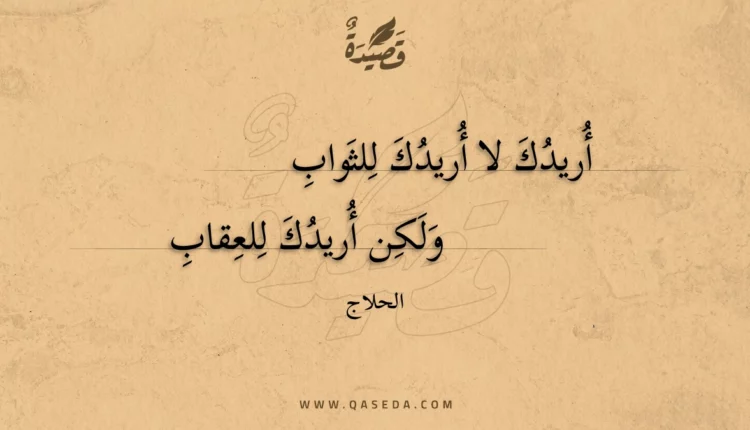 قَصِيْدَةٌ
أُريدُكَ لا أُريدُكَ لِلثَوابِ
وَلَكِن أُريدُكَ لِلعِقابِ
الحلاج
WWW.QASEDA.COM